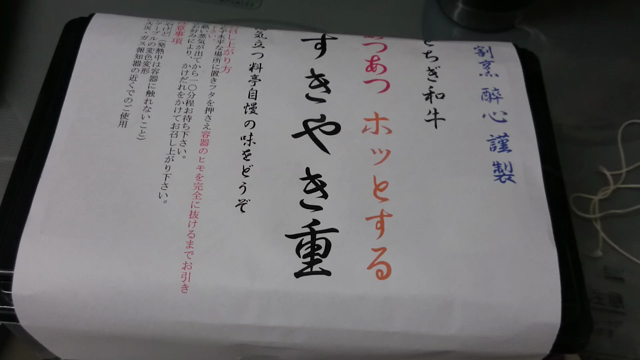 割烹 醉心 謹製
とちぎ和牛
つあつ ホッとする
すきやき重
気立つ料亭自慢の味をどうぞ
召し上がり方
平な場所に置きフタを押さえ容器のヒモを完全に抜けるまでお引き
い蒸気が出てから一〇分程お待ち下さい。
お好みにより、かけだれをかけてお召し上がり下さい。
意事項
発熱中は容器に触れないこと
ーブルの変色変形
火災・ガス報知器の近くでのご使用